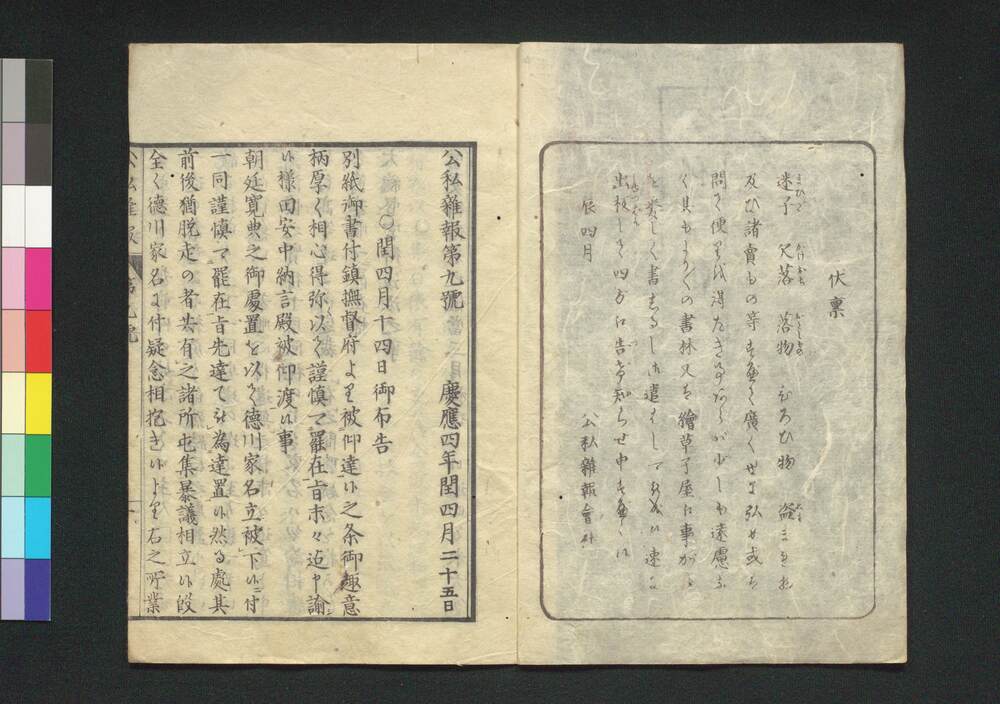 伏稟
迷子 欠落 落物 ひろひ物 盗まれ物
及ひ諸賣もの等 廣く世に弘め或ハ
問て便りを得たき事あらバ少しも遠慮な
く其もより〳〵の書林又ハ繪草子屋に事がら
を委しく書しるし御遣ハし 速に
出板して四方に告げ知らせ申
辰四月 公私雜報會社
公私雜報第九號 慶應四年閏四月二十五日
〇閏四月十四日御布告
別紙御書付鎮撫督府より被仰達候之条御趣意
柄厚く相心得弥以て謹慎可罷在旨末々迄申諭
候様田安中納言殿被仰渡候事
朝廷寛典之御處置を以て德川家名立被下候ニ付
一同謹慎可罷在旨先達て相為達置候然る處其
前後猶脱走の者共有之諸所屯集暴議相立候段
全く德川家名に付疑念相抱き候より右之所業
公私雜報 第九號